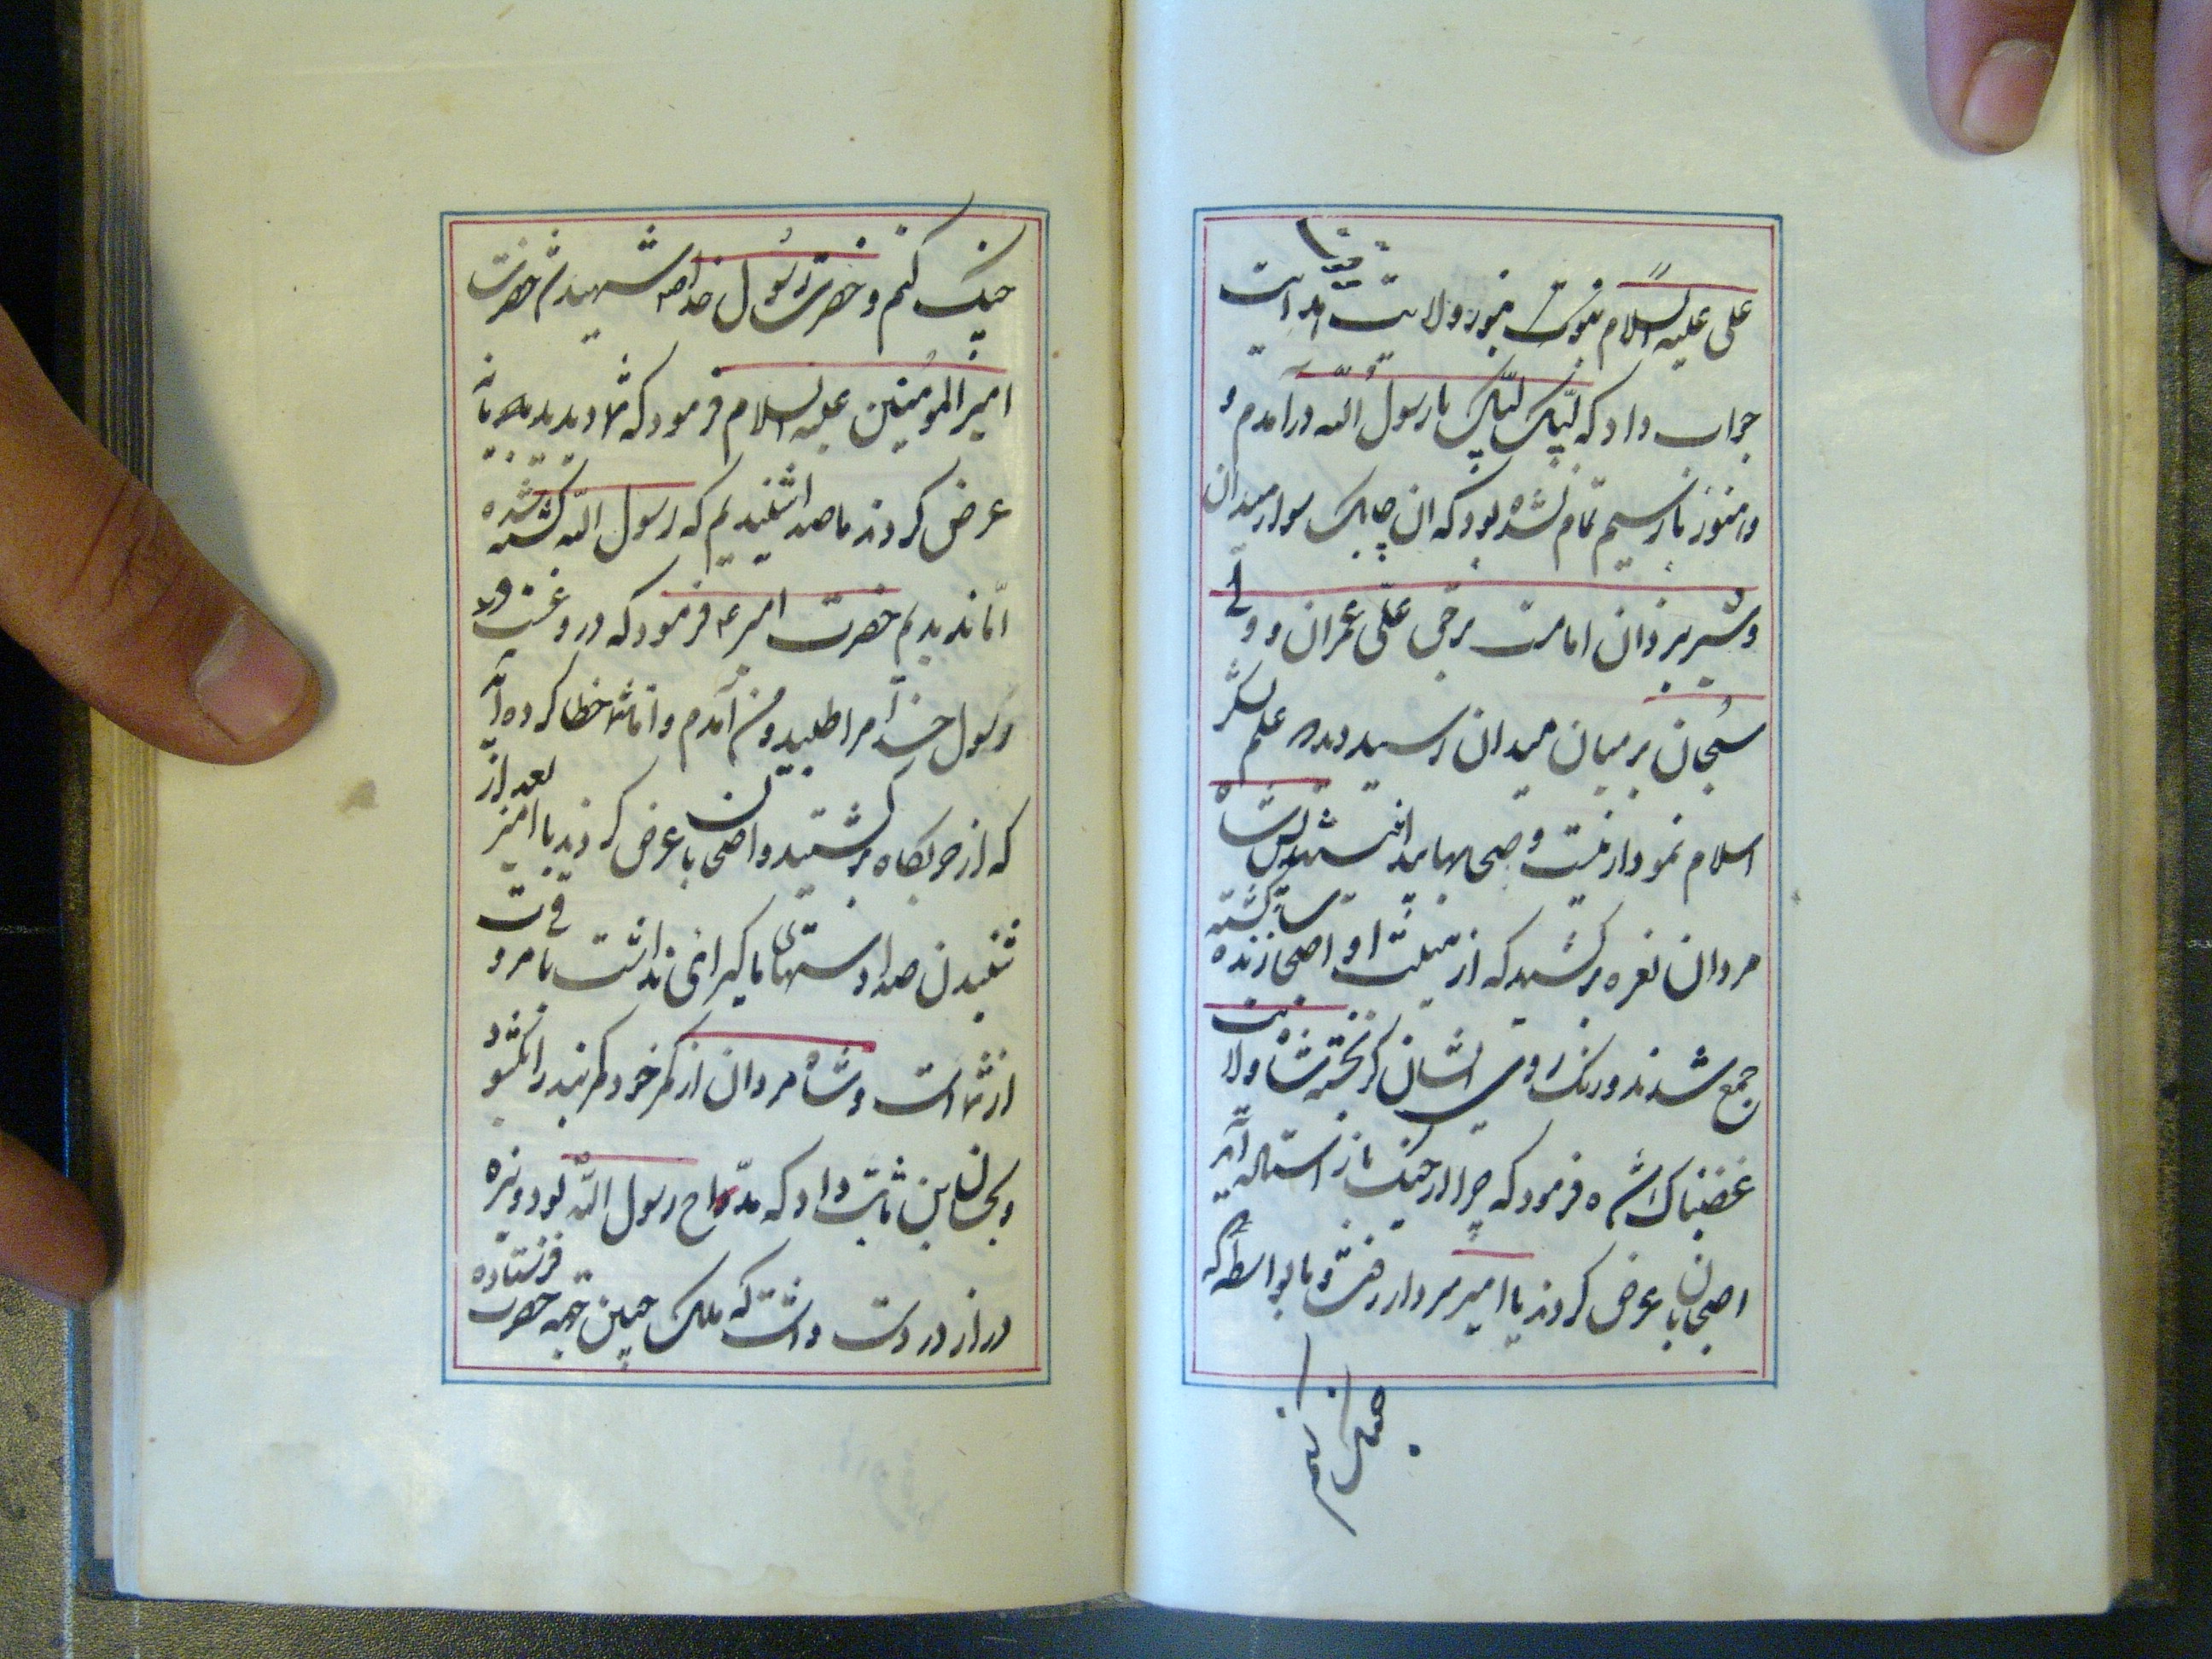 علی علیه السلام بنور ولایت
جواب داد که لبیک لبیک یا رسول الله درآمدم و
و هنوز تمام نشده بود که ان چابک سوار میدان
و شیر یزدان امامت علی عمران و ولی
سبحان بر میان میدان رسید دید که علم لشکر
اسلام نمودار نیست و صحابها پیدا نیستند پس شاه
مردان نعره برکشید که از هیبت او اصحابان زنده گشته
جمع شدند و رنگ روی ایشان گریخته شاه ولایت
غضبناک شده فرمود که چرا از جنگ باز استاده اید
اصحابان عرض کردند یا امیر سردار رفت و ما بواسطه که
جنگ کنیم
جنگ کنیم و حضرت رسول خدا ص شهید شد حضرت
امیرالمومنین علیه السلام فرمود که شما دیدید یا نه
عرض کردند ما صدا شنیدیم که رسول الله کشته شده
اما ندیدیم حضرت امیر ع فرمود که دروغست و
رسول خدا مرا طلبید و من آمدم و اما شما خطا کرده اید
که از حربگاه برگشتید و اصحابان عرض کردند یا امیر بعد از
شنیدن صدا دستهای ما گیرائی نداشت تا مروت
از شما است و شاه مردان از کمر خود کمربند را بگشود
و بحسان بن ثابت داد که مداح رسول الله بود و نیزه
دراز در دست داشت که ملک چین بجهة حضرت فرستاده